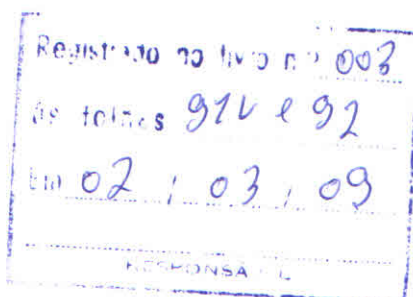 Registrado no livro nº 003
às folhas 91v e 92
Em 02 / 03 / 09
RESPONSÁVEL